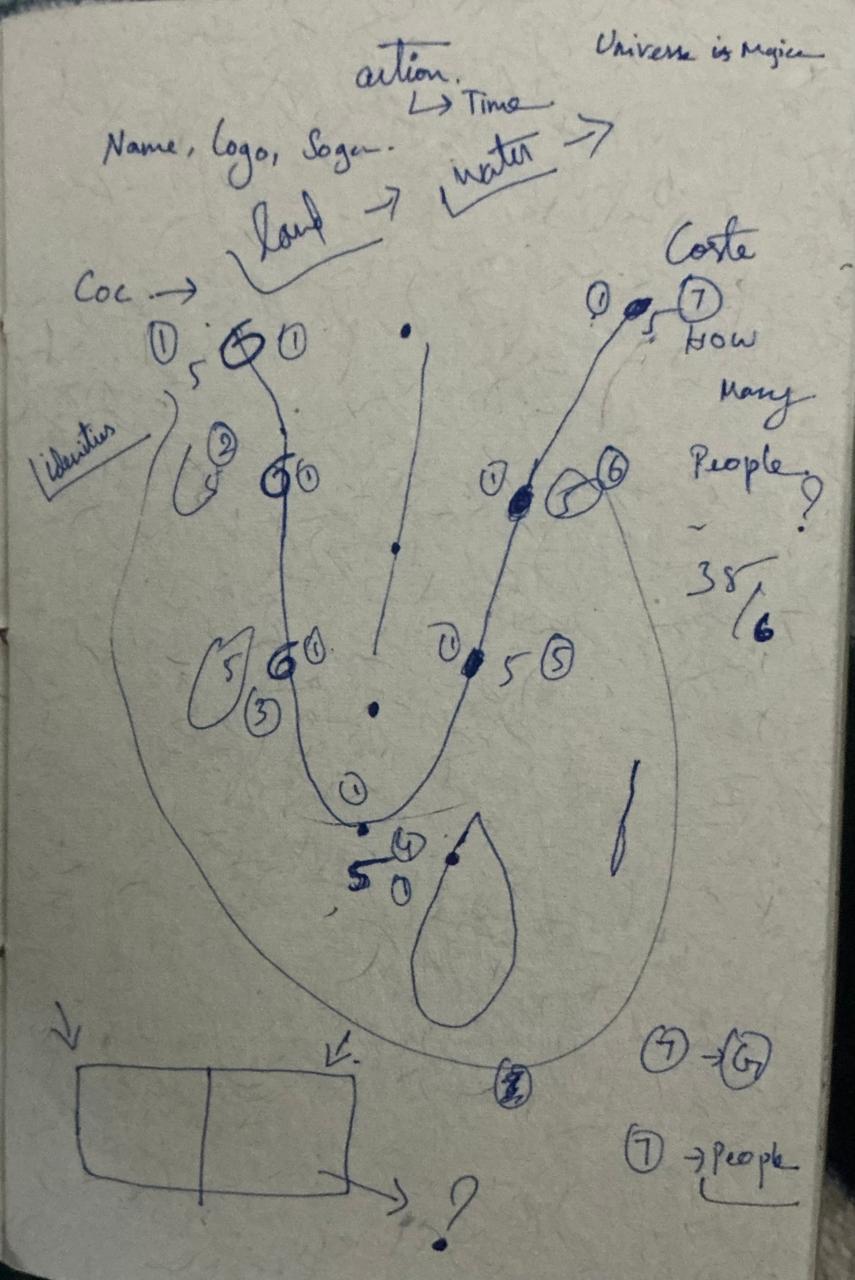 Universe is Mgice
action.
↳ Time
Name, Logo, Sogan.
land → water →
Coc →
Coste
① 5 ① ① 5 ⑦
How
Many
People ?
identities
② 5 ① ① 5 ⑥
38/6
5 ③ ① ① 5 ⑤
①
5 ④
①
⑦ → G
⑦ → People
?